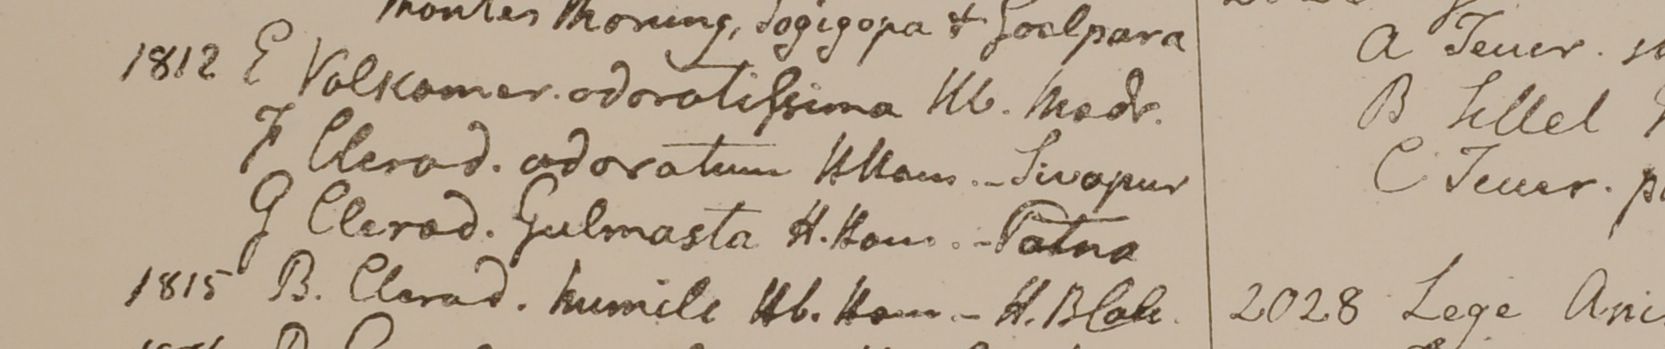 Montes Morung, Jogigopa & Goalpara
1812 E Volkamer. odoratissima Hb. Madr.
F Clerod. odoratum HHam. - Sivapur
G Clerod. Gulmasta H. Ham. - Patna
1815 B. Clerod. humile Hb. Ham - H. B Calc.
A Teucr.
B
C Teucr.
2028 Lege